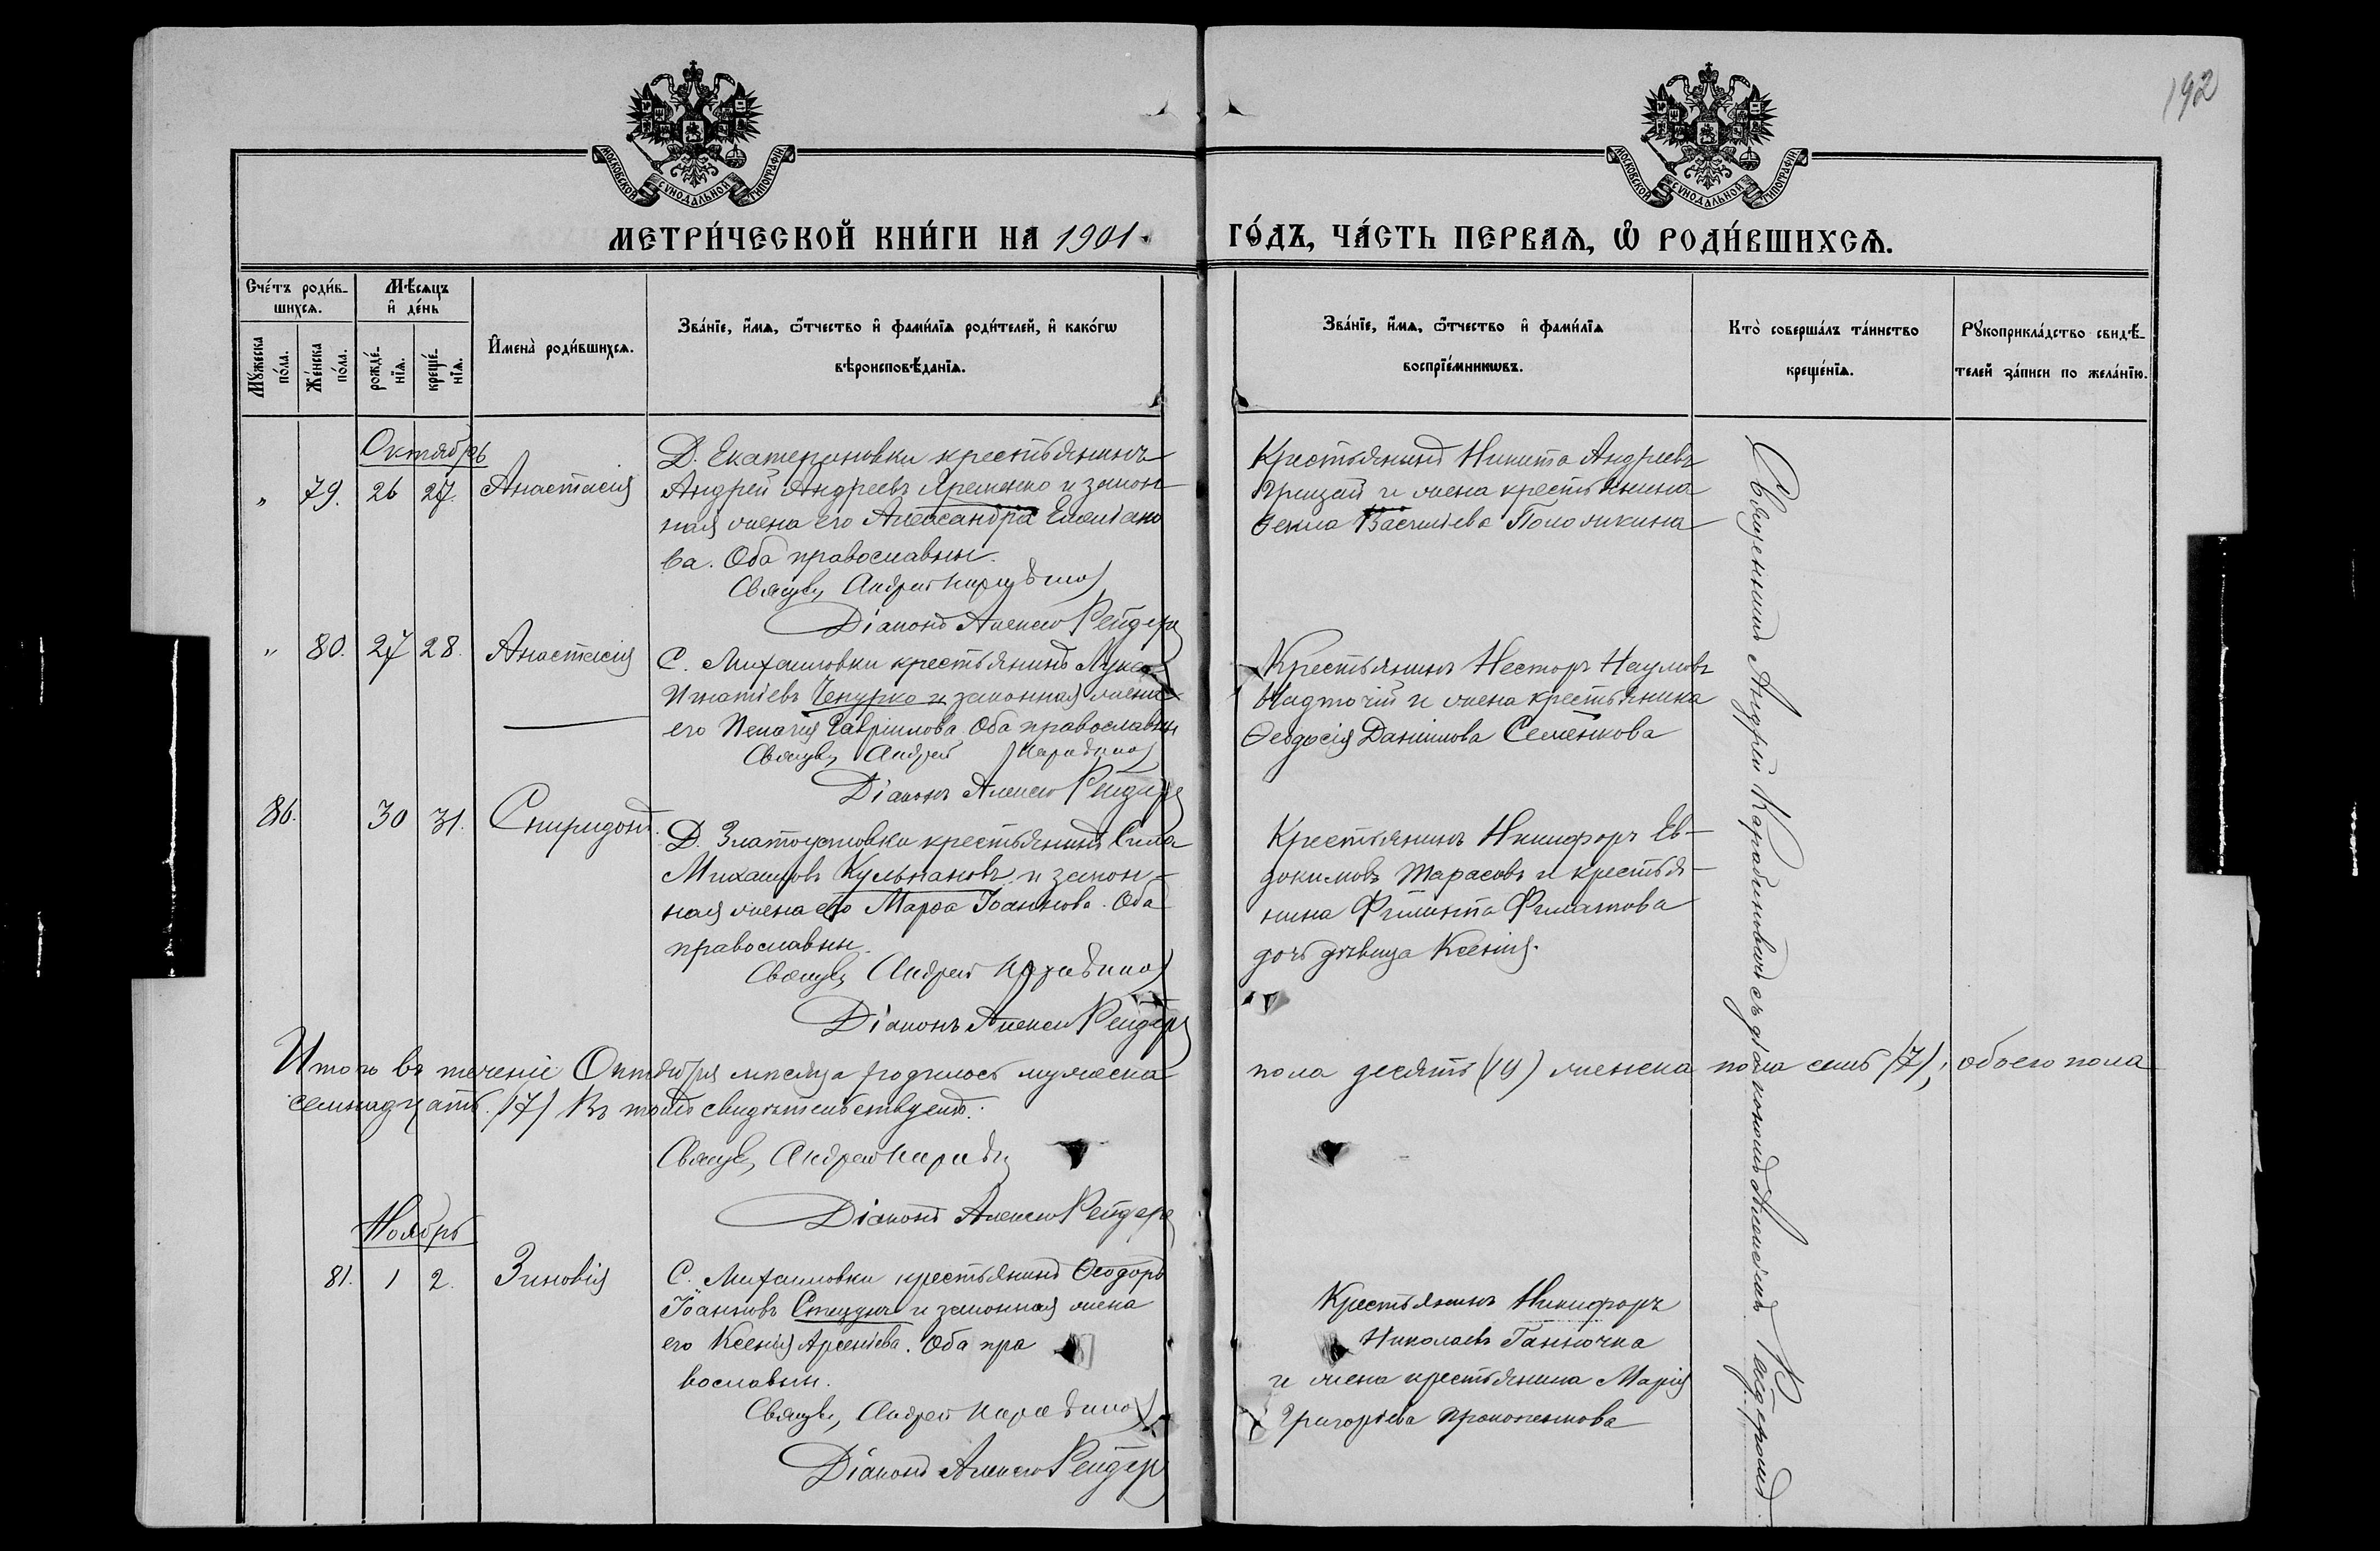 192
МОСКОВСКОЙ СѴНОДАЛЬНОЙ ТИПОГРАФІИ
МОСКОВСКОЙ СѴНОДАЛЬНОЙ ТИПОГРАФІИ
МЕТРИ́ЧЕСКОЙ КНИ́ГИ НА 1901
ГО́ДЪ, ЧА́СТЬ ПЕРВАѦ, Ѡ҆ РОДИ́ВШИХСѦ.
Сче́тъ роди́в-
шихсѧ.
Мѣ́сѧцъ
и҆ де́нь
Мꙋ́жеска
по́ла.
Же́нска
по́ла.
рожде́-
нїѧ.
креще́-
нїѧ.
И҆мена̀ роди́вшихсѧ.
Зва́нїе, и҆́мѧ, ѻ҆́тчество и҆ фами́лїѧ роди́телей, и҆ како́гѡ
вѣроисповѣ́данїѧ.
Зва́нїе, и҆́мѧ, ѻ҆́тчество и҆ фами́лїѧ
воспрїе́мникѡвъ.
Кто̀ соверша́лъ та́инство
креще́нїѧ.
Рꙋкоприкла́дство свидѣ́-
телей за́писи по жела́нїю.
Октябрь
" 79. 26 27. Анастасія
Д. Екатериновки крестьянинъ
Андрей Андреевъ Яременко и закон-
ная жена его Александра Емеліано
ва. Оба православны.
Священ. Андрей Карабинов
Діаконъ Алексѣй Рейдеръ
Крестьянинъ Никита Андреевъ
Грицай и жена крестьянина
Ѳекла Васильева Положикина
" 80. 27 28. Анастасія
С. Михаиловки крестьянинъ Лука
Игнатіевъ Чепурко и законная жена
его Пелагія Гавріилова. Оба православны
Священ. Андрей Карабинов
Діаконъ Алексѣй Рейдеръ
Крестьянинъ Несторъ Наумовъ
Надточій и жена крестьянина
Ѳеодосія Даніилова Семенкова
86. 30 31. Спиридонъ.
Д. Златоустовки крестьянинъ Сила
Михаиловъ Кульпановъ и закон-
ная жена его Марѳа Іоаннова. Оба
православны.
Священ. Андрей Карабинов
Діаконъ Алексѣй Рейдеръ
Крестьянинъ Никифоръ Ев-
докимовъ Тарасовъ и крестья-
нина Филиппа Филатова
дочь дѣвица Ксенія.
Итого въ теченіе Октября мѣсяца родилось мужеска пола десять (10) женска пола семь (7), обоего пола
семнадцать. (17) Въ томъ свидѣтельствуемъ:
Священ. Андрей Караби
Діаконъ Алексѣй Рейдеръ
Ноябрь
81. 1 2. Зиновія
С. Михаиловки крестьянинъ Ѳеодоръ
Іоанновъ Стецунъ и законная жена
его Ксенія Арсеніева. Оба пра
вославны.
Священ. Андрей Карабинов
Діаконъ Алексѣй Рейдеръ
Крестьянинъ Никифоръ
Николаевъ Ганночка
и жена крестьянина Марія
Григоріева Прокопенкова
Священникъ Андрей Карабиновичъ съ діакономъ Алексѣемъ Рейдеромъ.